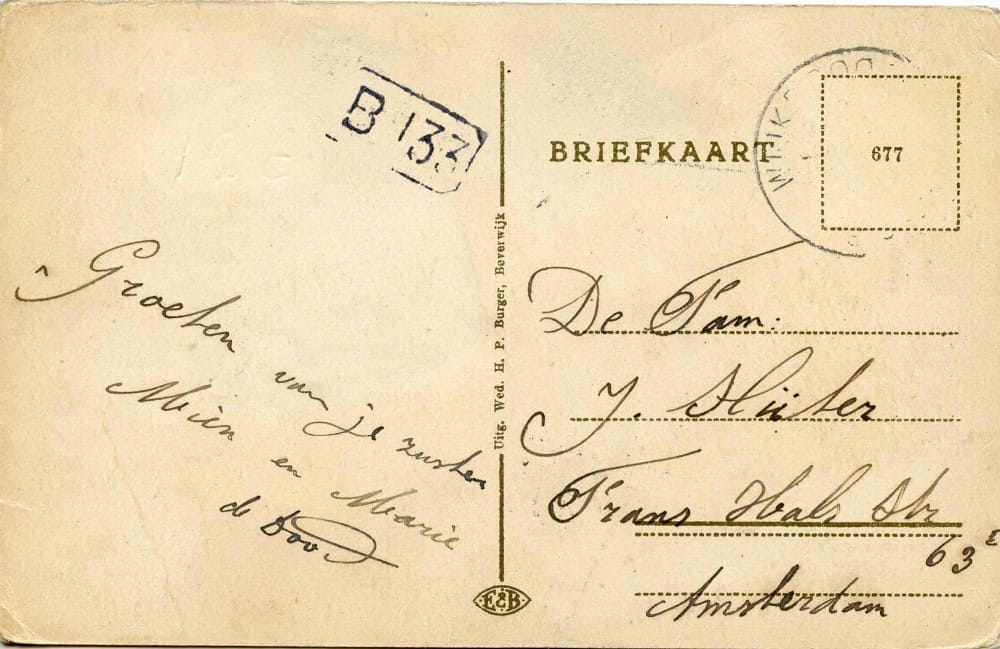 B 133
BRIEFKAART
677
WIJK
Uitg. Wed. H. P. Burger, Beverwijk
Groeten
van je zuster
Mien
en Marie
de Boo
De Fam:
J. Hüter
Frans Hals Str
63
Amsterdam
E&B